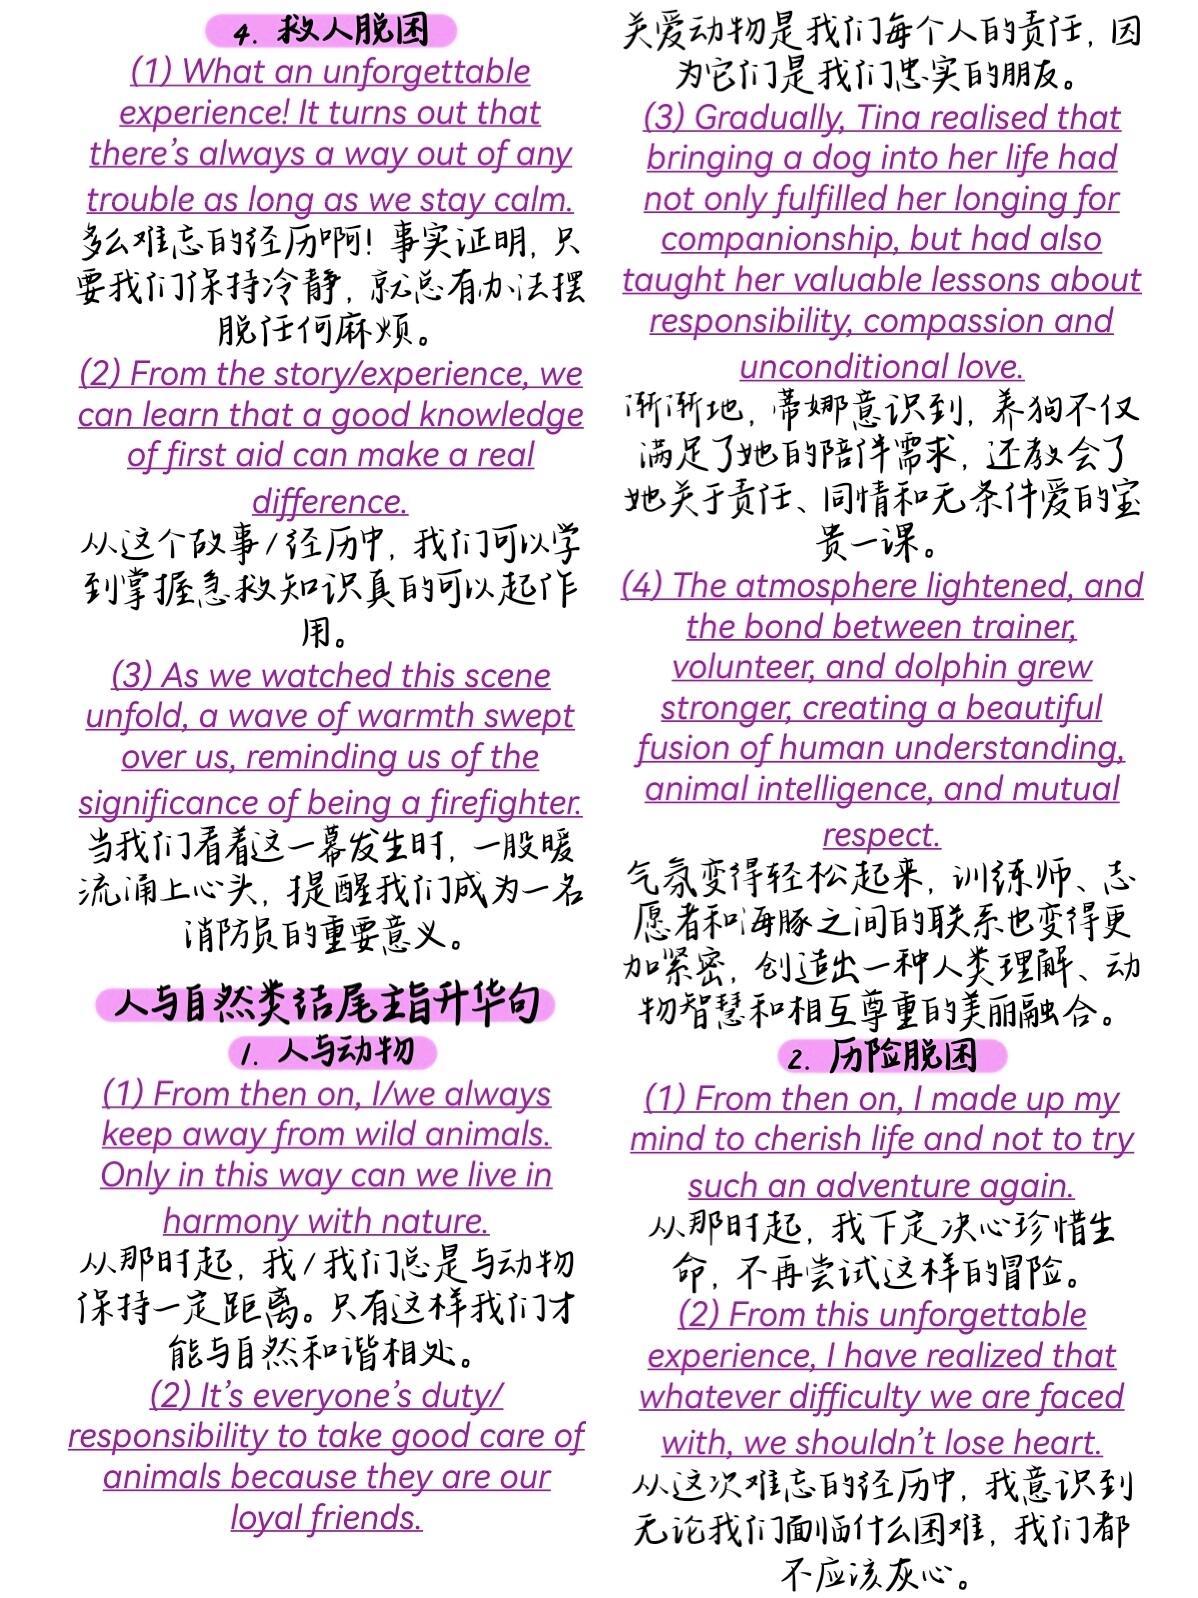 4. 救人脱困
(1) What an unforgettable
experience! It turns out that
there's always a way out of any
trouble as long as we stay calm.
多么难忘的经历啊! 事实证明, 只
要我们保持冷静, 就总有办法摆
脱任何麻烦。
(2) From the story/experience, we
can learn that a good knowledge
of first aid can make a real
difference.
从这个故事/经历中, 我们可以学
到掌握急救知识真的可以起作
用。
(3) As we watched this scene
unfold, a wave of warmth swept
over us, reminding us of the
significance of being a firefighter.
当我们看着这一幕发生时, 一股暖
流涌上心头, 提醒我们成为一名
消防员的重要意义。
人与自然类结尾主旨升华句
1. 人与动物
(1) From then on, I/we always
keep away from wild animals.
Only in this way can we live in
harmony with nature.
从那时起, 我/我们总是与动物
保持一定距离。只有这样我们才
能与自然和谐相处。
(2) It's everyone's duty/
responsibility to take good care of
animals because they are our
loyal friends.
关爱动物是我们每个人的责任, 因
为它们是我们忠实的朋友。
(3) Gradually, Tina realised that
bringing a dog into her life had
not only fulfilled her longing for
companionship, but had also
taught her valuable lessons about
responsibility, compassion and
unconditional love.
渐渐地, 蒂娜意识到, 养狗不仅
满足了她的陪伴需求, 还教会了
她关于责任、同情和无条件爱的宝
贵一课。
(4) The atmosphere lightened, and
the bond between trainer,
volunteer, and dolphin grew
stronger, creating a beautiful
fusion of human understanding,
animal intelligence, and mutual
respect.
气氛变得轻松起来, 训练师、志
愿者和海豚之间的联系也变得更
加紧密, 创造出一种人类理解、动
物智慧和相互尊重的美丽融合。
2. 历险脱困
(1) From then on, I made up my
mind to cherish life and not to try
such an adventure again.
从那时起, 我下定决心珍惜生
命, 不再尝试这样的冒险。
(2) From this unforgettable
experience, I have realized that
whatever difficulty we are faced
with, we shouldn't lose heart.
从这次难忘的经历中, 我意识到
无论我们面临什么困难, 我们都
不应该灰心。